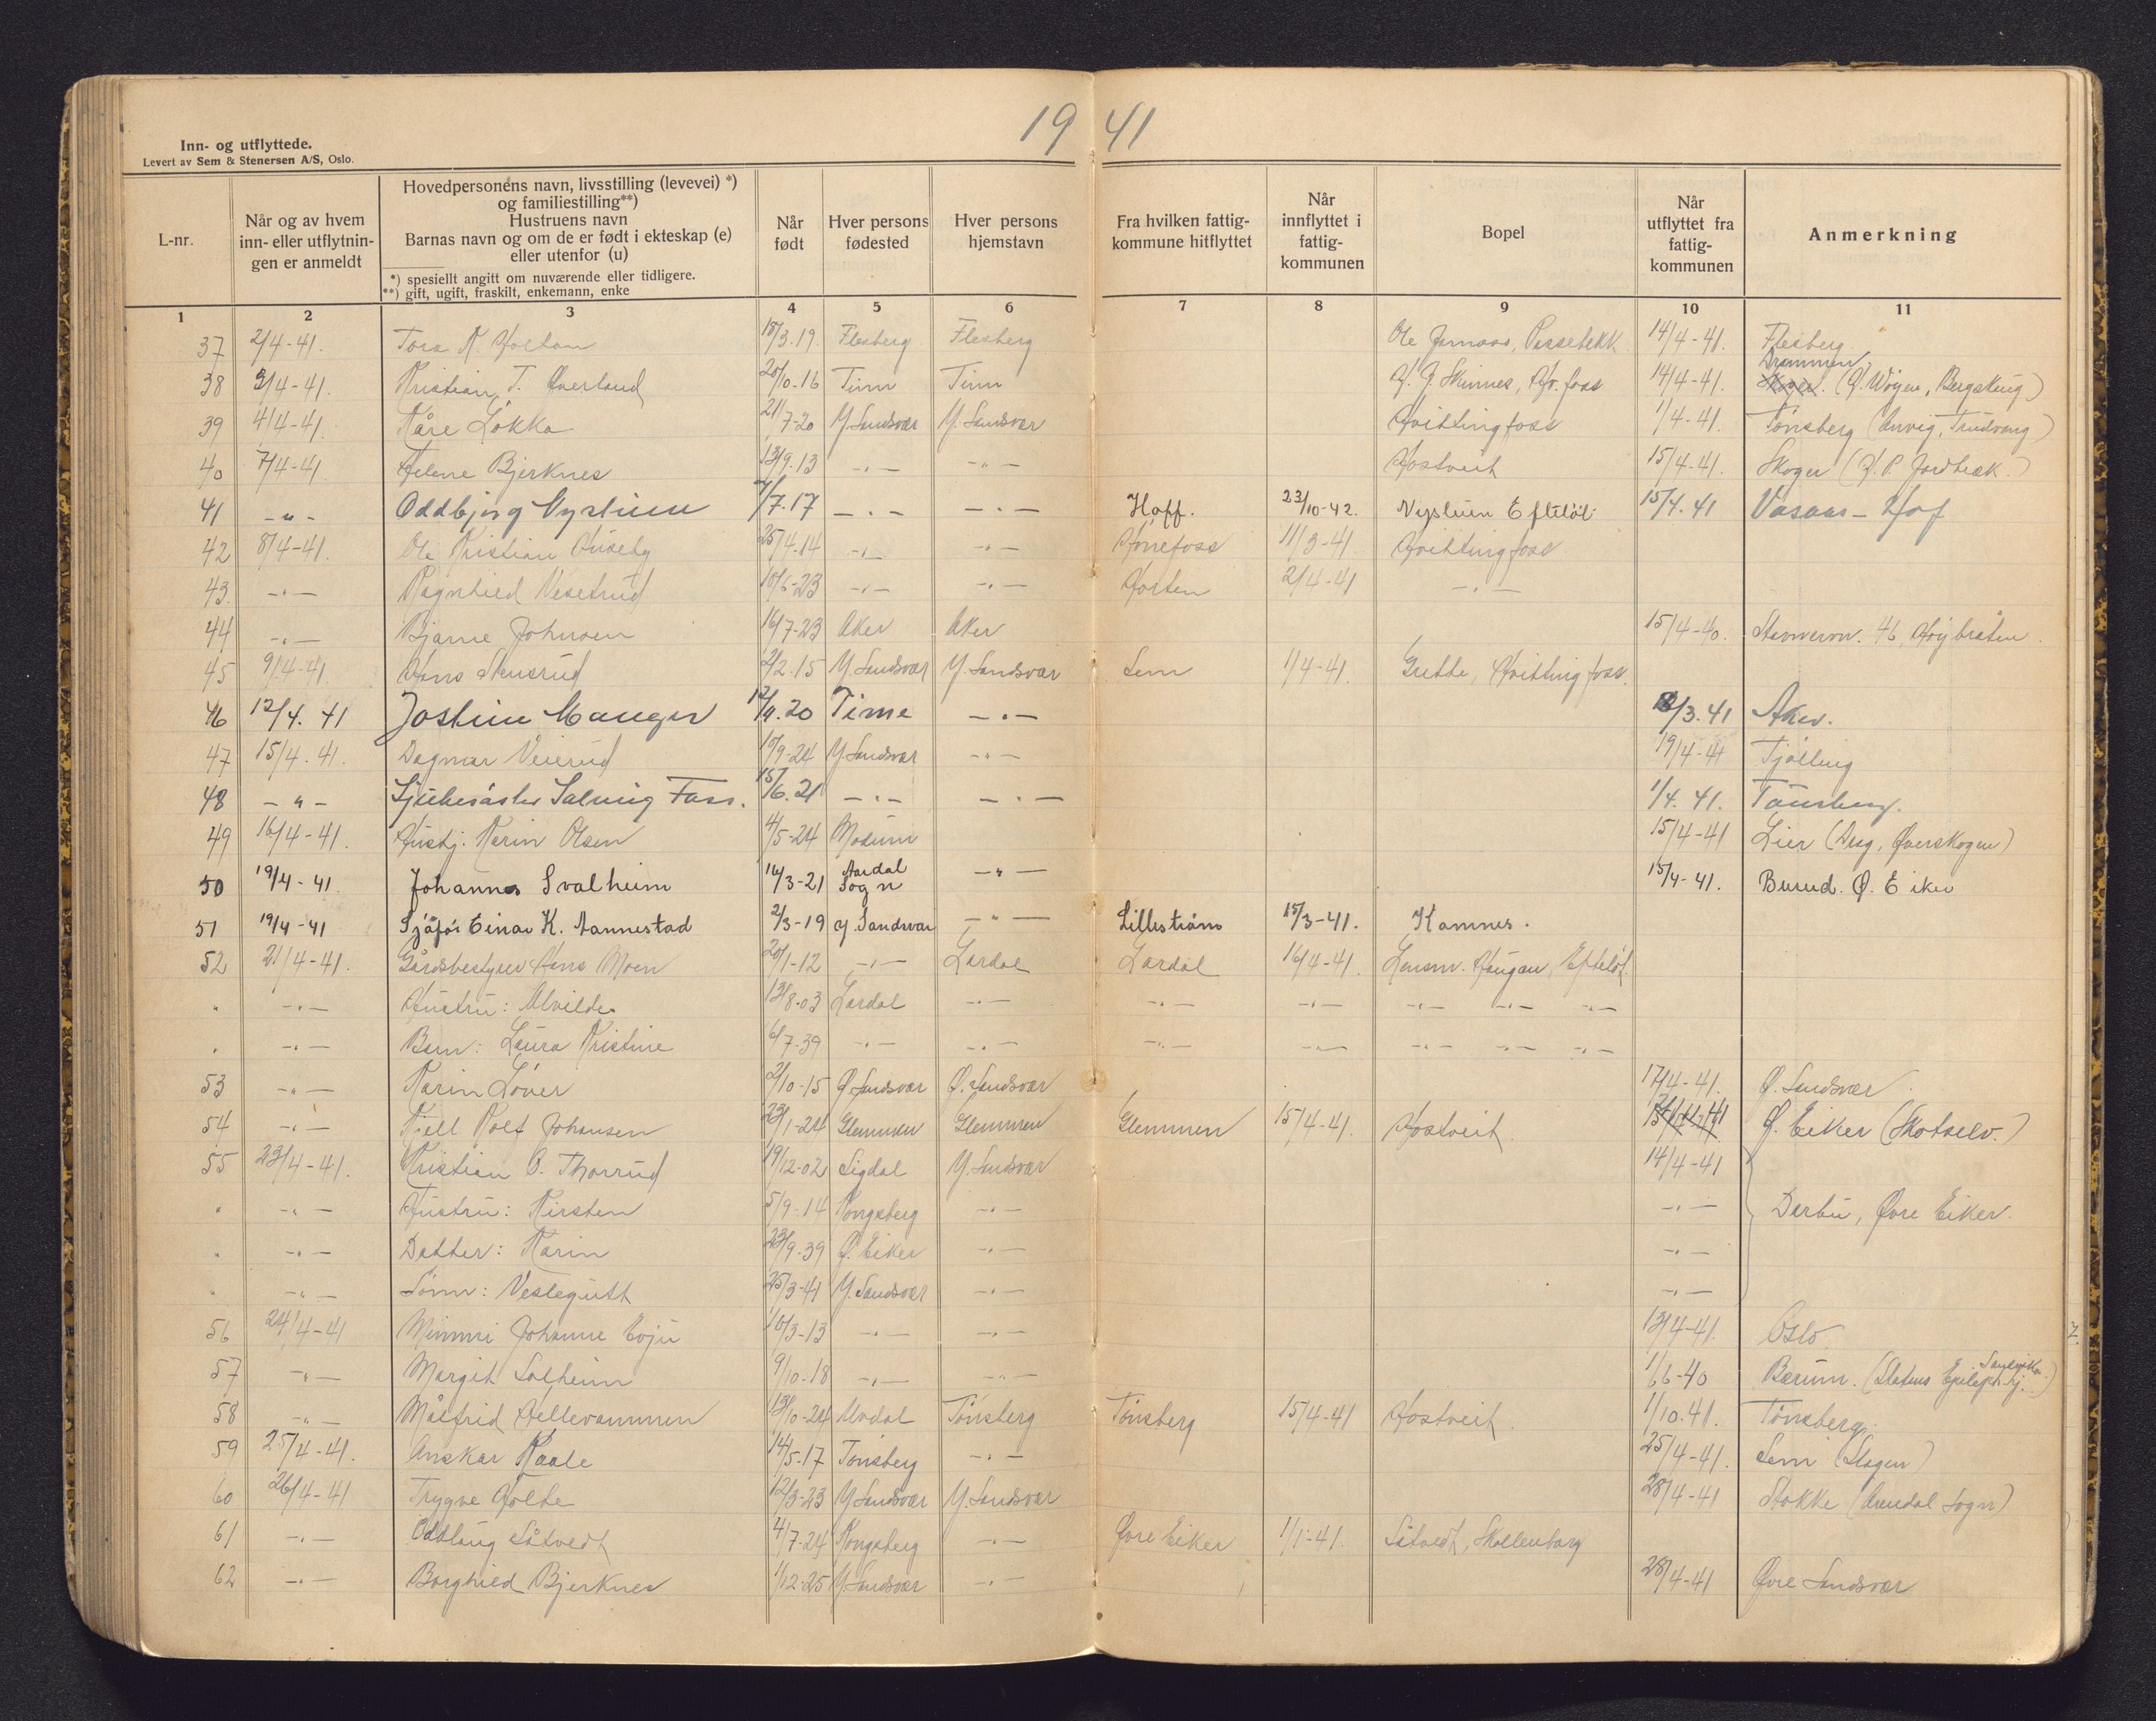 19 41
Inn- og utflyttede.
Levert av Sem & Stenersen A/S, Oslo.
L-nr.
Når og av hvem inn- eller utflytnin-gen er anmeldt
Hovedpersonens navn, livsstilling (levevei) *)
og familiestilling**)
Hustruens navn
Barnas navn og om de er født i ekteskap (e)
eller utenfor (u)
*) spesiellt angitt om nuværende eller tidligere.
**) gift, ugift, fraskilt, enkemann, enke
Når født
Hver persons fødested
Hver persons hjemstavn
Fra hvilken fattig-kommune hitflyttet
Når innflyttet i fattig-kommunen
Bopel
Når utflyttet fra fattig-kommunen
Anmerkning
1 2 3 4 5 6 7 8 9 10 11
37 2/4-41. Tora K. 18/3.19. Flesberg Flesberg Ole 14/4-41. Flesberg
38 3/4-41. Kristian T. Øverland 20/10-16 Tinn Tinn 14/4-41. Drammen
39 4/4-41. Kåre Løkka 21/7-20 Y. Sandsvær Y. Sandsvær Hvittingfoss 1/4-41. Tønsberg
40 7/4-41 Helene Bjerknes 13/9.13 -"- -"- Hostveit 15/4-41. Skoger
41 -"- Oddbjørg Nysteien 7/7.17 -"- -"- Hoff. 23/10-42. Efteløt 15/4.41 Vasaas - Hof
42 8/4-41. Ole Kristian Huseby 25/4.14 -"- -"- Hønefoss 11/3-41 Hvittingfoss
43. -"- Ragnhild Vesetrud 10/6-23 -"- -"- Horten 2/4-41 -"-
44 -"- Bjarne Johnsen 16/7-23 Aker Aker 15/4-40. 46, Høybråten
45 9/4-41. Hans Stensrud 2/2.15 Y. Sandsvær Y. Sandsvær Sem 1/4-41. Grette, Hvittingfoss.
46 12/4.41 Jostein Mauger 20 Time -"- 3.41 Aker.
47 15/4.41. Dagmar Veierud 10/9-24 Y. Sandsvær -"- 19/4-41 Tjølling
48 -"- Solveig Foss. 15/6.21 -"- -"- 1/4.41. Tønsberg.
49 16/4-41. Hushj. Karin Olsen 4/5-24 Modum 15/4-41 Lier (Øverskogen)
50 19/4-41. Johannes Svalheim 14/3-21 Aardal Sogn -"- 15/4-41. Burud. Ø. Eiker
51 19/4-41 Sjåfør Einar K. Aannestad 2/3-19 Y. Sandsvær -"- Lillestrøm 15/3-41. Komnes.
52 21/4-41. Gårdsbestyrer Hans Moen 20/1-12 -"- Lardal Lardal 16/4-41. Haugan, Eftеløt.
" -"- Hustru: Alvilde 13/8-03 Lardal -"- -"- -"- -"- -"- -"-
" -"- Barn: Laura Kristine 6/7-39 -"- -"- -"- -"- -"- -"- -"-
53 -"- Karin Løver 2/10-15 Ø. Sandsvær Ø. Sandsvær 17/4-41. Ø. Sandsvær
54 -"- Kjell Rolf Johansen 23/1-24 Glemmen Glemmen Glemmen 15/4-41. Hostveit Ø. Eiker (Skotselv.)
55 23/4-41. Kristian O. Thorrud 19/12-02 Sigdal Y. Sandsvær 14/4-41
" -"- Hustru: Kirsten 5/9-14 Kongsberg -"- -"- Darbu, Øvre Eiker.
" -"- Datter: Karin 23/9-39 Ø. Eiker -"- -"-
" -"- Sønn: Veslegutt 25/3-41 Y. Sandsvær -"- -"-
56 24/4-41 Mimmi Johanne Evju 10/3-13 -"- -"- 13/4-41. Oslo
57 -"- Margit Solheim 9/10-18 -"- -"- 1/6-40 Bærum. (Statens Epilept. hj. Sandvika.)
58 -"- Målfrid Hellevammen 13/10-24 Uvdal Tønsberg Tønsberg 15/4-41 Hostveit. 1/10.41. Tønsberg.
59 25/4-41. Anskar Kaale 14/5-17 Tønsberg -"- 25/4-41. Sem (Slagen)
60 26/4-41 Trygve Holte 12/3-23 Y. Sandsvær Y. Sandsvær 28/4-41 Stokke (Arendal sogn)
61 -"- Oddlaug Såtvedt 4/7-24 Kongsberg -"- Øvre Eiker 1/1-41. Såtvedt, Skollenborg
62 -"- Borghild Bjerknes 1/12-25 Y. Sandsvær -"- 28/4-41 Øvre Sandsvær